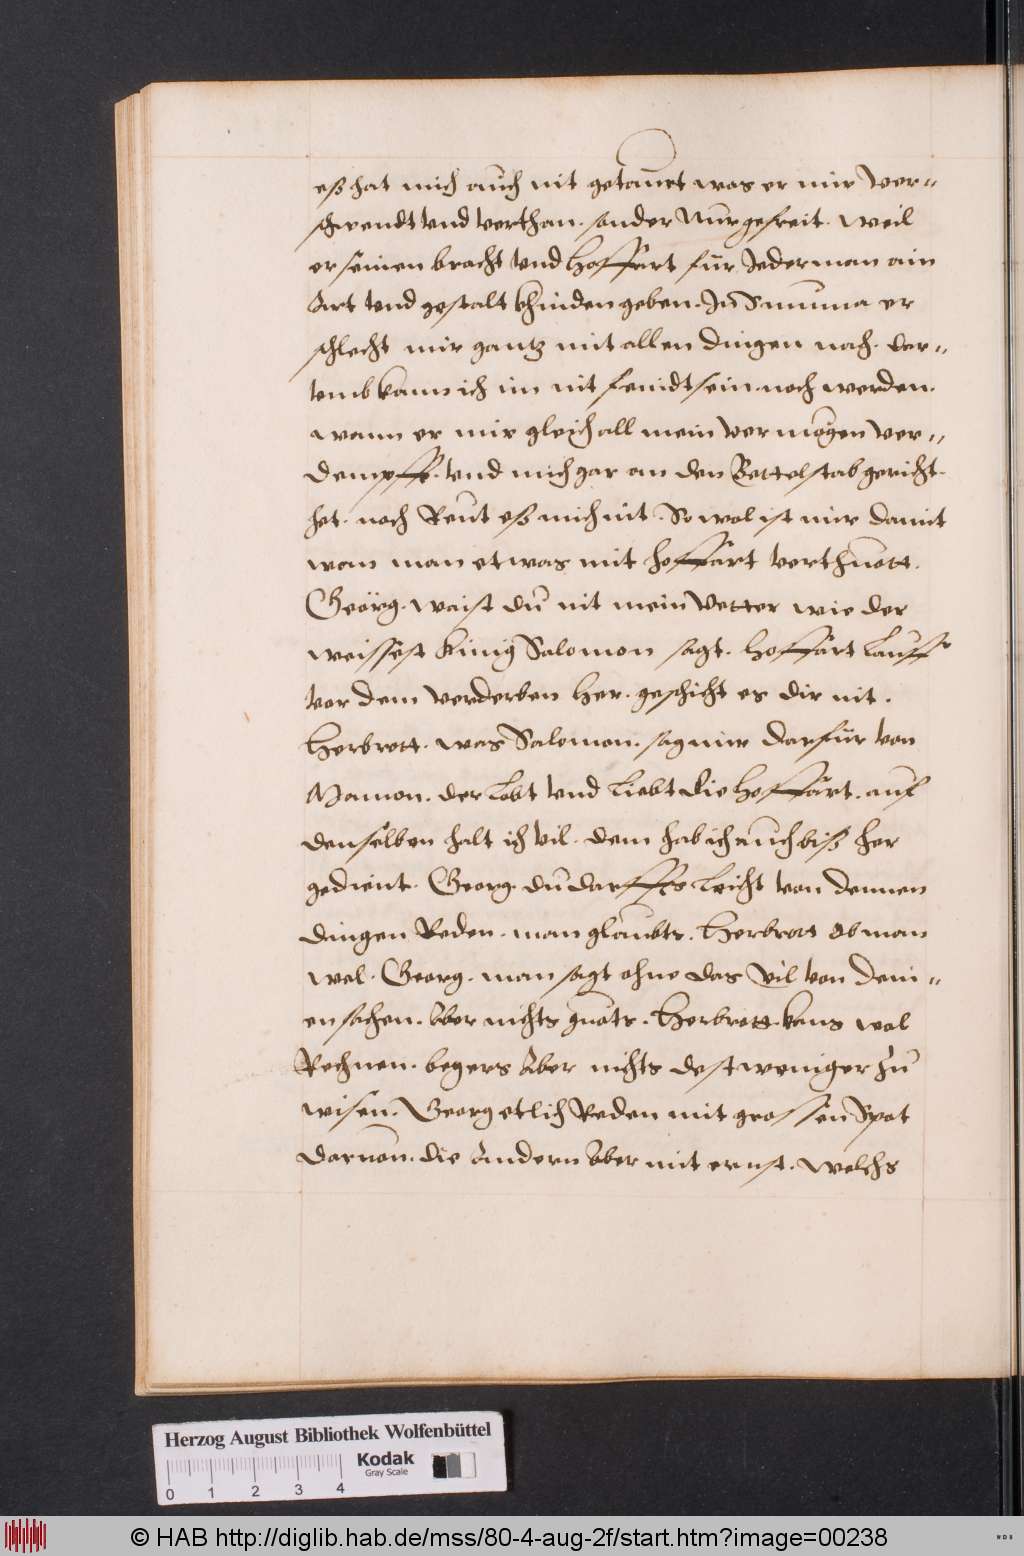 eß hat mich auch nit getaurt was er mir ver=
schwendt vnd verthan. sonder nur gefreit. weil
er seinen bracht vnd hoffart für Jederman ain
art vnd gestalt khinden geben. In Summa er
schlecht mir gantz mit allen dingen nach. dar=
vmb kann ich im nit feindt sein. noch werden.
wann er mir gleich all mein vermögen ver=
dempfft. vnd mich gar an den Bettelstab gericht
het. noch Reut eß mich nit. So wol ist mir damit
wan man etwas mit hoffart verthuett.
Geörg. waist du nit mein Vetter wie der
weissest Künig Salomon sagt. hoffart laufft
vor dem verderben her. geschicht es dir nit.
Herbrott. was Salomon. sag mir darfür von
Mamon. der lobt vnd liebt die hoffart. auf
denselben halt ich vil. dem hab ich auch biß her
gedient. Georg. du darffts leicht von dennen
dingen Reden. man glaubts. Herbrott Ob man
wol. Georg. man sagt ohne das vil von dein=
en sachen. Aber nichts guots. Herbrott. kans wol
Rechnen. begers Aber nichts destweniger zu
wisen. Georg etlich Reden mit grossen Spot
daruon. die Andern Aber mit ernst. welchs
Herzog August Bibliothek Wolfenbüttel
Kodak
Gray Scale
0 1 2 3 4
© HAB http://diglib.hab.de/mss/80-4-aug-2f/start.htm?image=00238